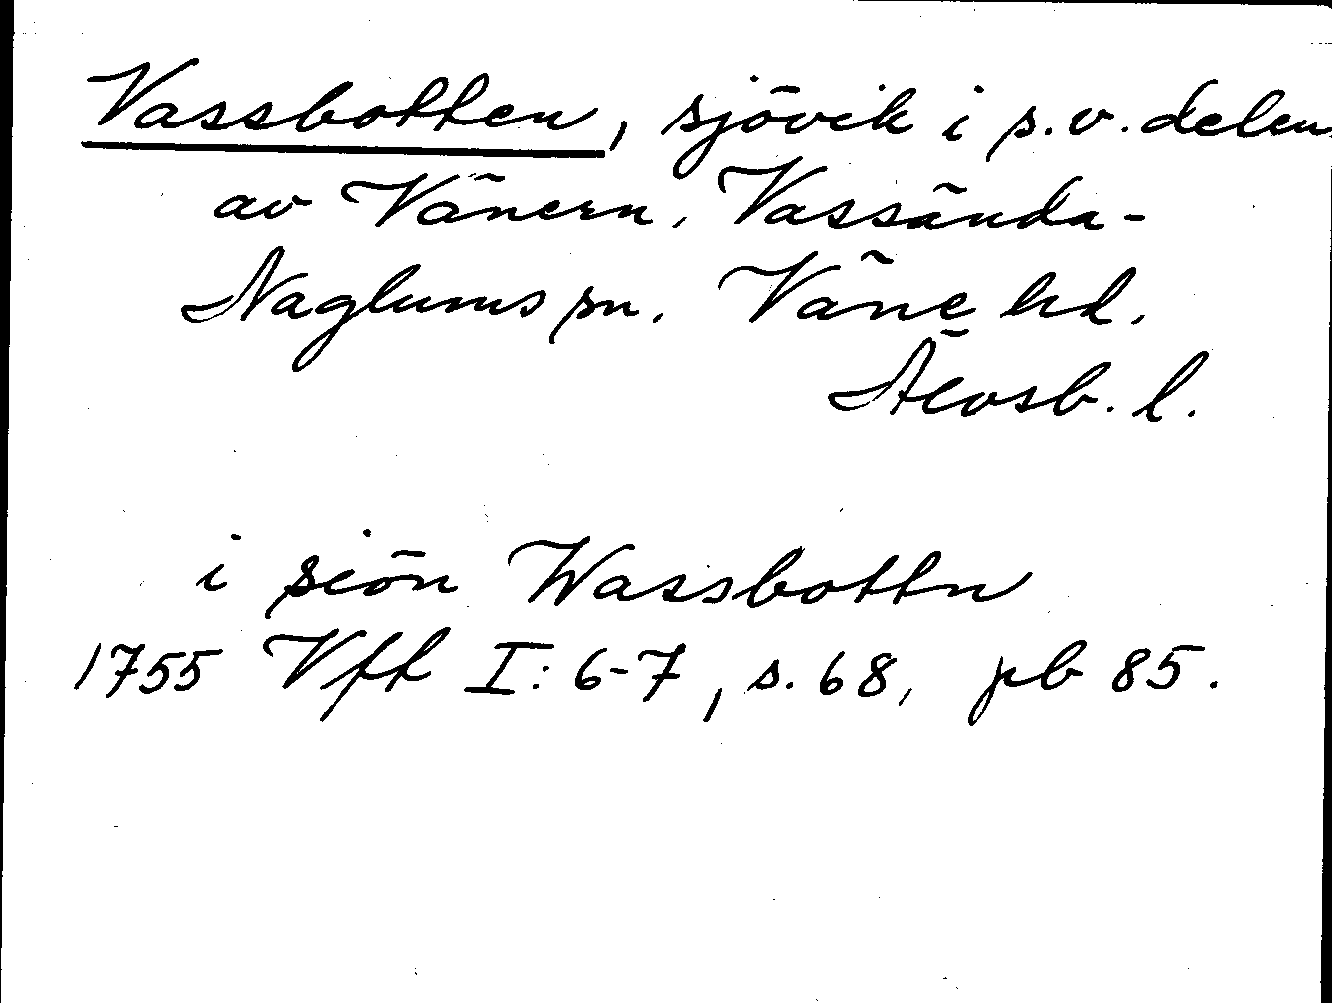 Vassbotten, sjövik i s.v. delen
av Vänern, Vassända-
Naglums sn. Väne hd.
Älvsb. l.
i siön Wassbottn
1755 Vft I: 6-7, s. 68, pb 85.